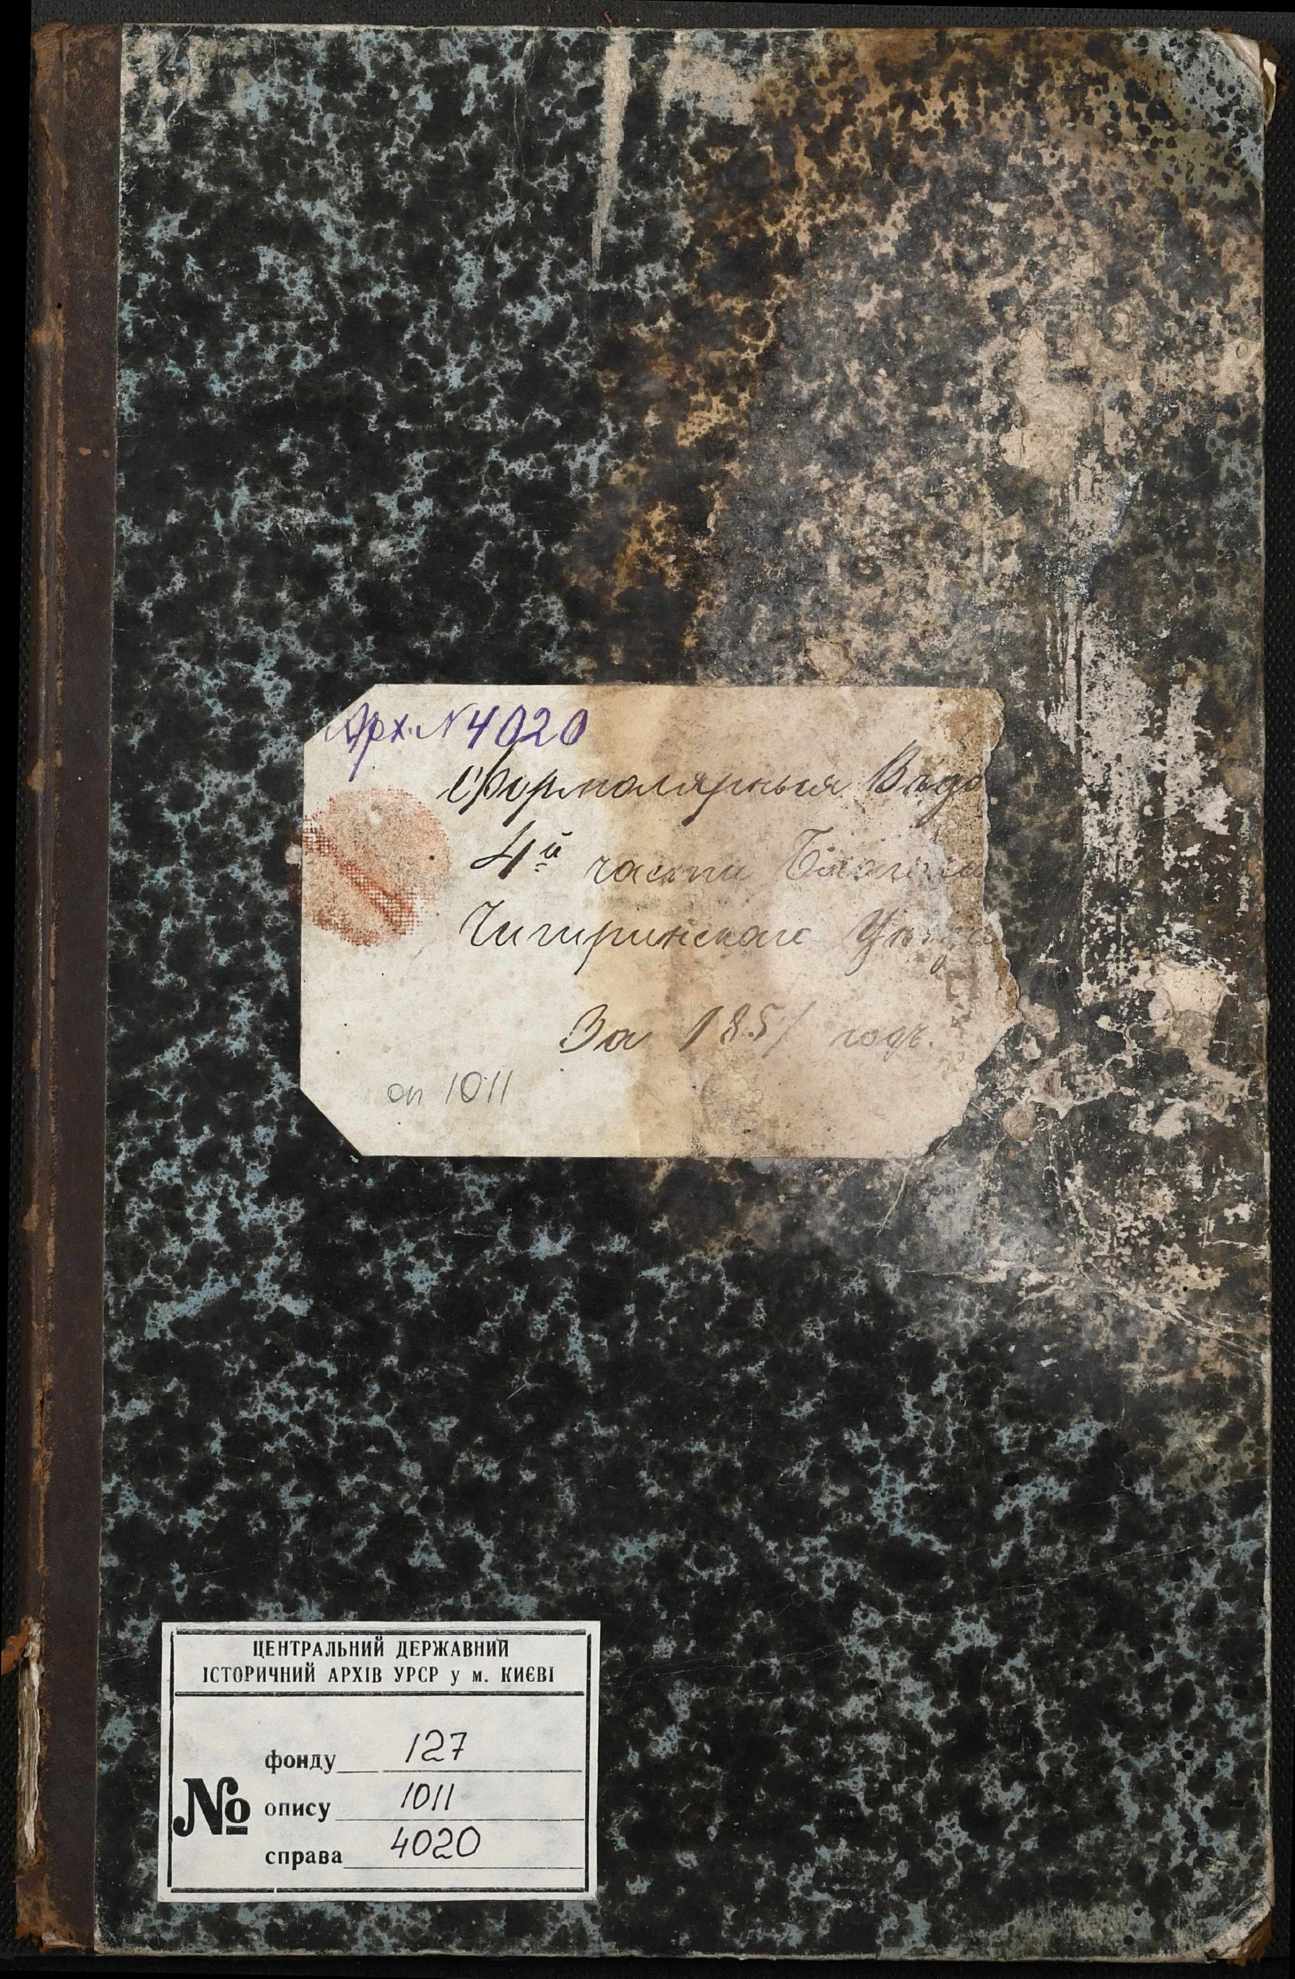 Арх. N 4020
Формолярныя Вѣдо
4й части
Чигиринскаго Уѣзда
За 1851 годъ.
оп 1011
ЦЕНТРАЛЬНИЙ ДЕРЖАВНИЙ
ІСТОРИЧНИЙ АРХІВ УРСР у м. КИЄВІ
фонду 127
№ опису 1011
справа 4020